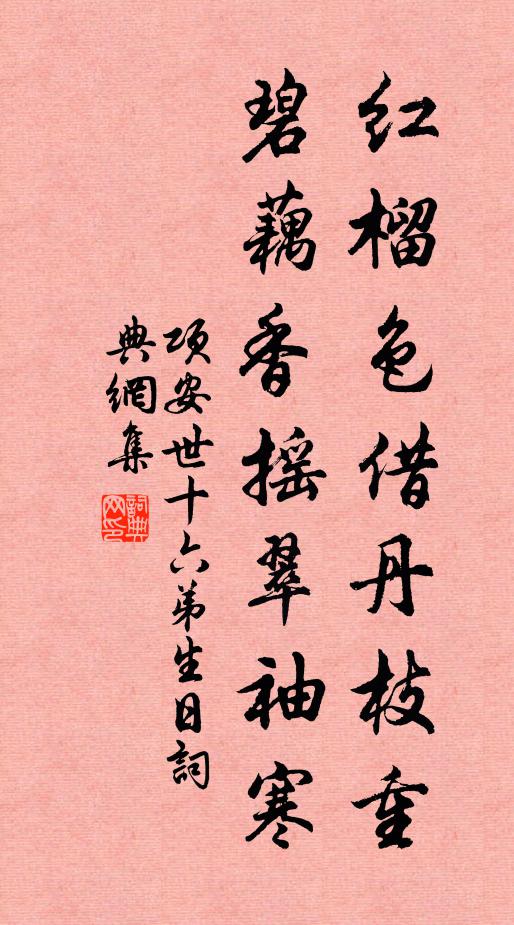 红榴色借丹枝重
碧藕香摇翠袖寒
项安世十六弟生日詞
典網集
詞典网印